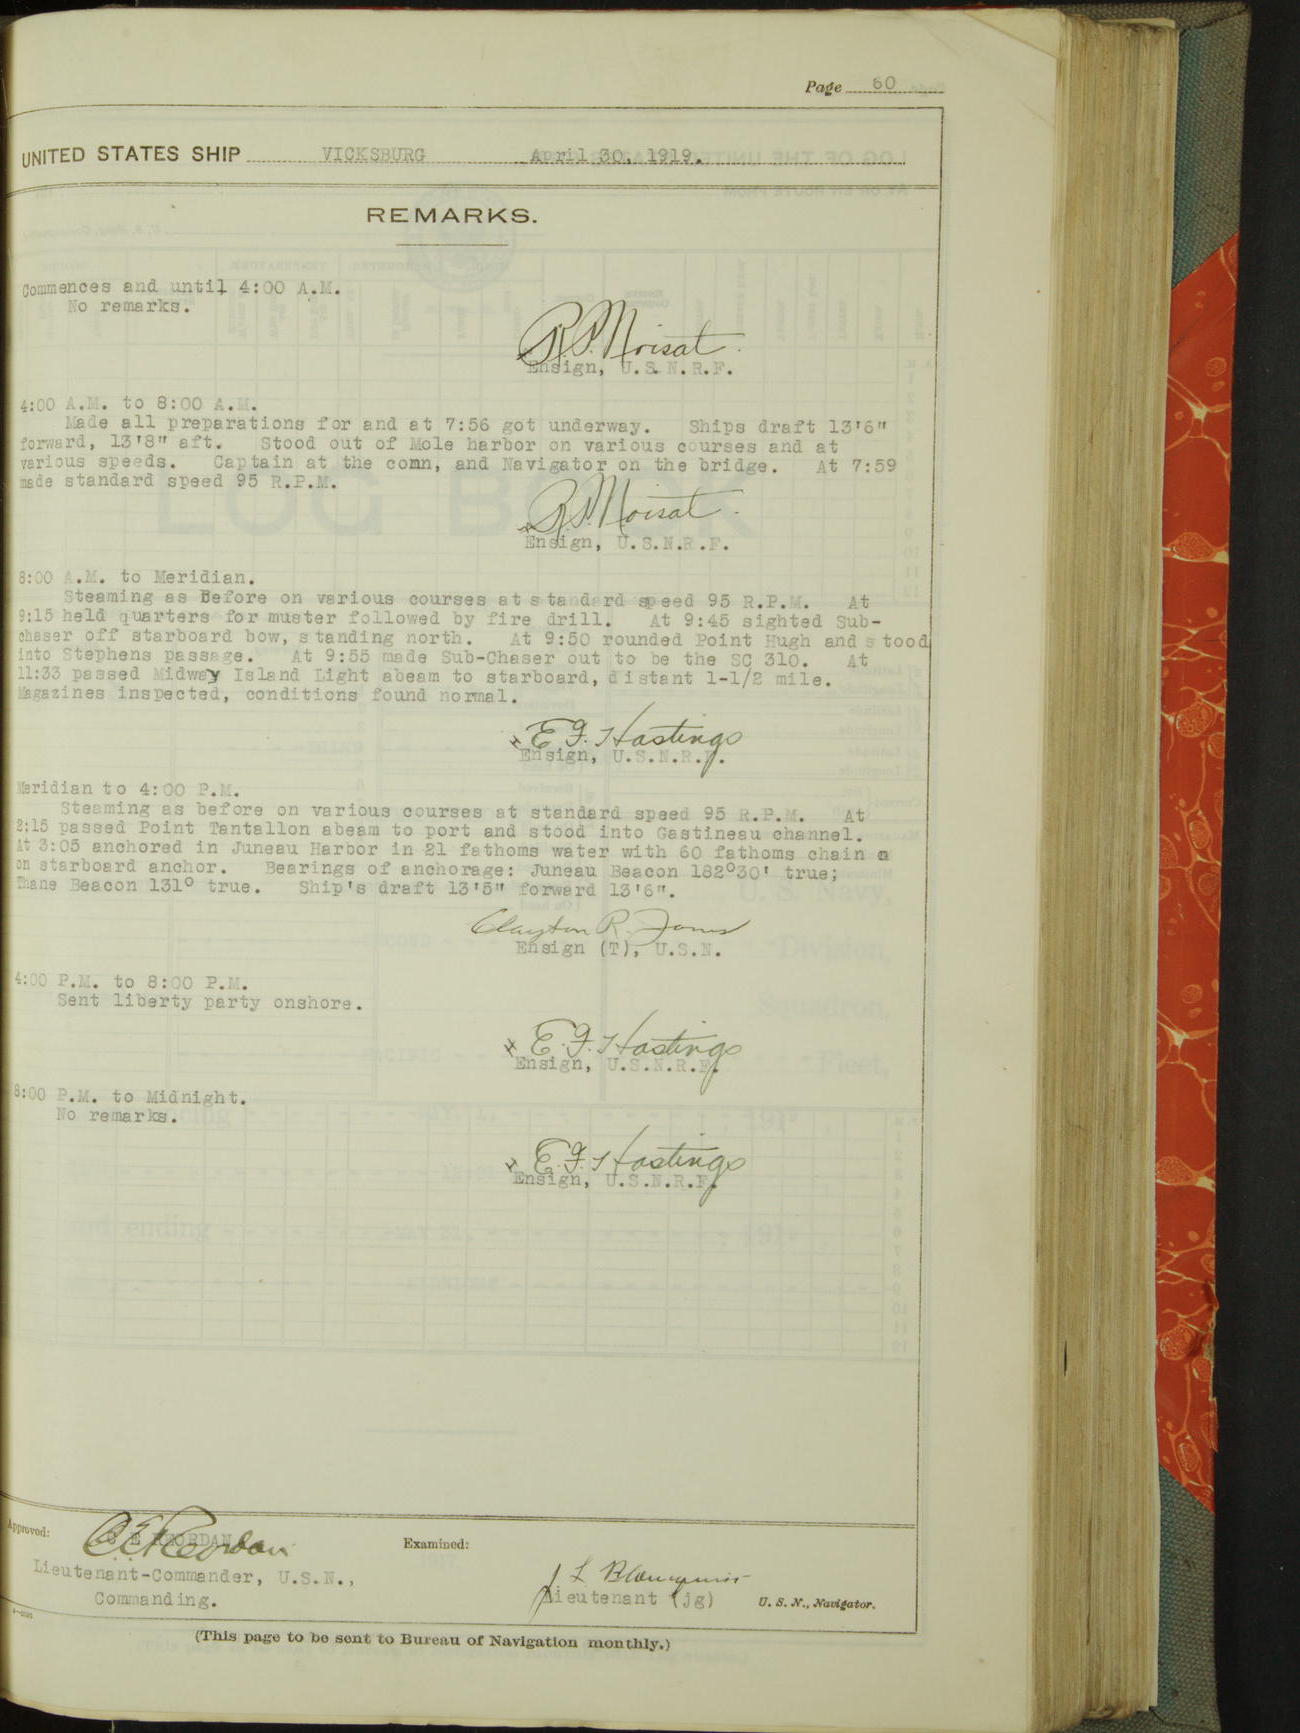 Page 60
UNITED STATES SHIP VICKSBURG April 30, 1919.
REMARKS.
Commences and until 4:00 A.M.
No remarks.
R.P. Moisat.
Ensign, U.S.N.R.F.
4:00 A.M. to 8:00 A.M.
Made all preparations for and at 7:56 got underway. Ships draft 13'6"
forward, 13'8" aft. Stood out of Mole harbor on various courses and at
various speeds. Captain at the conn, and Navigator on the bridge. At 7:59
made standard speed 95 R.P.M.
R.P. Moisat.
Ensign, U.S.N.R.F.
8:00 A.M. to Meridian.
Steaming as Before on various courses at standard speed 95 R.P.M. At
9:15 held quarters for muster followed by fire drill. At 9:45 sighted Sub-
chaser off starboard bow, standing north. At 9:50 rounded Point Hugh and stood
into Stephens passage. At 9:55 made Sub-Chaser out to be the SC 310. At
11:33 passed Midway Island Light abeam to starboard, distant 1-1/2 mile.
Magazines inspected, conditions found normal.
E.F. Hastings
Ensign, U.S.N.R.F.
Meridian to 4:00 P.M.
Steaming as before on various courses at standard speed 95 R.P.M. At
2:15 passed Point Tantallon abeam to port and stood into Gastineau channel.
At 3:05 anchored in Juneau Harbor in 21 fathoms water with 60 fathoms chain
on starboard anchor. Bearings of anchorage: Juneau Beacon 182°30' true;
Thane Beacon 131° true. Ship's draft 13'5" forward 13'6".
Clayton R. Jones
Ensign (T), U.S.N.
4:00 P.M. to 8:00 P.M.
Sent liberty party onshore.
E.F. Hastings
Ensign, U.S.N.R.F.
8:00 P.M. to Midnight.
No remarks.
E.F. Hastings
Ensign, U.S.N.R.F.
Approved:
C E Reordan
C E REORDAN
Lieutenant-Commander, U.S.N.,
Commanding.
Examined:
J L
Lieutenant (jg) U. S. N., Navigator.
(This page to be sent to Bureau of Navigation monthly.)